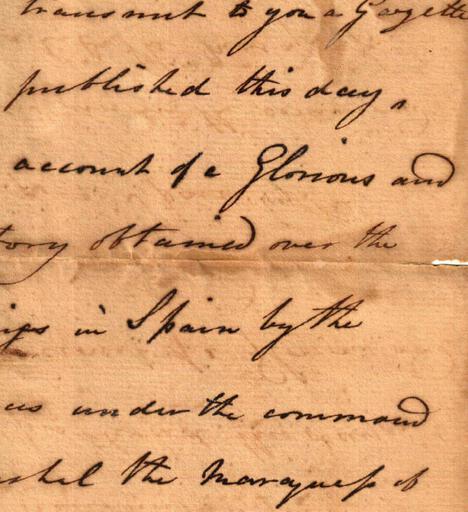 transmit to you a Gazette
published this day,
account of a Glorious and
tory obtained over the
in Spain by the
under the command
shel the Marquess of